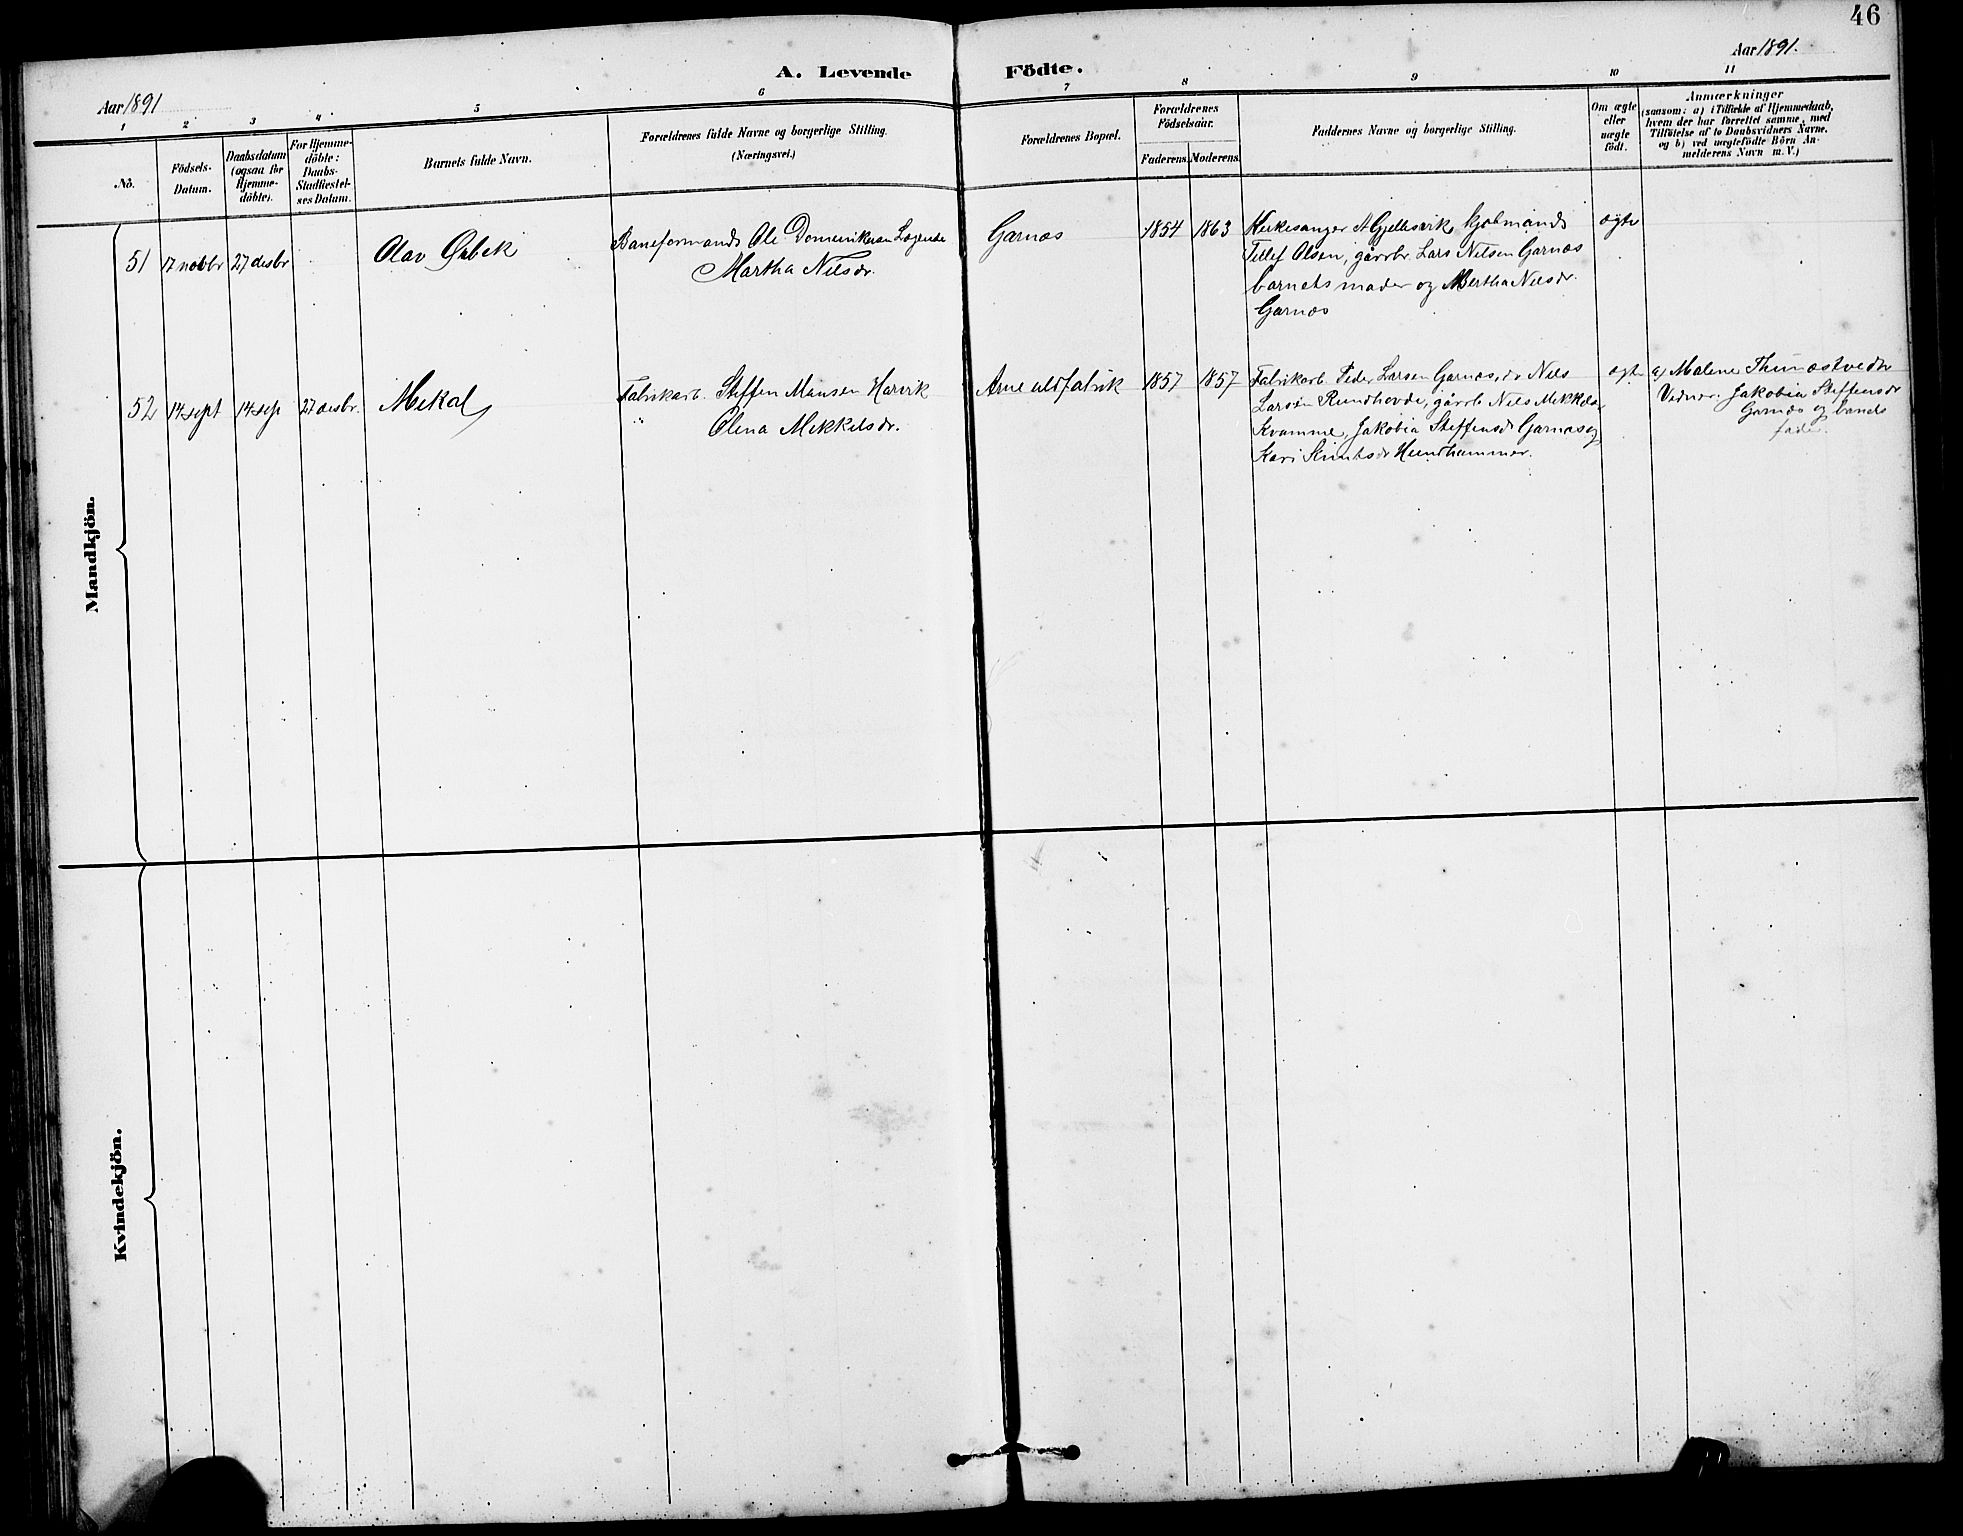 46
Aar 1891
A. Levende Födte.
Aar 1891.
1 2 3 4 5 6 7 8 9 10 11
No.
Födsels-
Datum.
Daabsdatum
(ogsaa for
Hjemme-
döbte).
For Hjemme-
döbte:
Daabs-
Stadfæstel-
ses Datum.
Barnets fulde Navn.
Forældrenes fulde Navne og borgerlige Stilling.
(Næringsvei.)
Forældrenes Bopæl.
Forældrenes
Födselsaar.
Faderens. Moderens.
Faddernes Navne og borgerlige Stilling.
Om ægte
eller
uægte
født.
Anmærkninger
(saasom: a) i Tilfælde af Hjemmedaab,
hvem der har forrettet samme, med
Tilföielse af to Daabsvidners Navne.
og b) ved uægtefödte Börn An-
melderens Navn m. V.)
Mandkjön.
51 17 novbr 27 desbr
Olav
Baneformand Ole
Martha Nilsdr.
Garnæs
1854 1863
Kirkesanger A Gjellesvik, kjøbmand
Tellef Olsen, gårbr. Lars Nilsen Garnæs
barnets moder og Bertha Nilsdr.
Garnæs
ægte
52 14 sept 14 sep 27 desbr.
Mikal
Fabrikarb. Steffen Monsen Harvik
Olina Mikkelsdr.
Arne uldfabrik
1857 1857
Fabrikarb. Peder Larsen Garnæs, do Nils
Larsen Rundhovde, gårrb Nils Mikkels.
Kvamme, Jakobia Steffensdr Garnæs og
Kari Knutsdr Hundhammer.
ægte
a) Malene Thunæstvedt
Vidner. Jakobia Steffensdr
Garnæs og barnets
fader.
Kvindekjön.